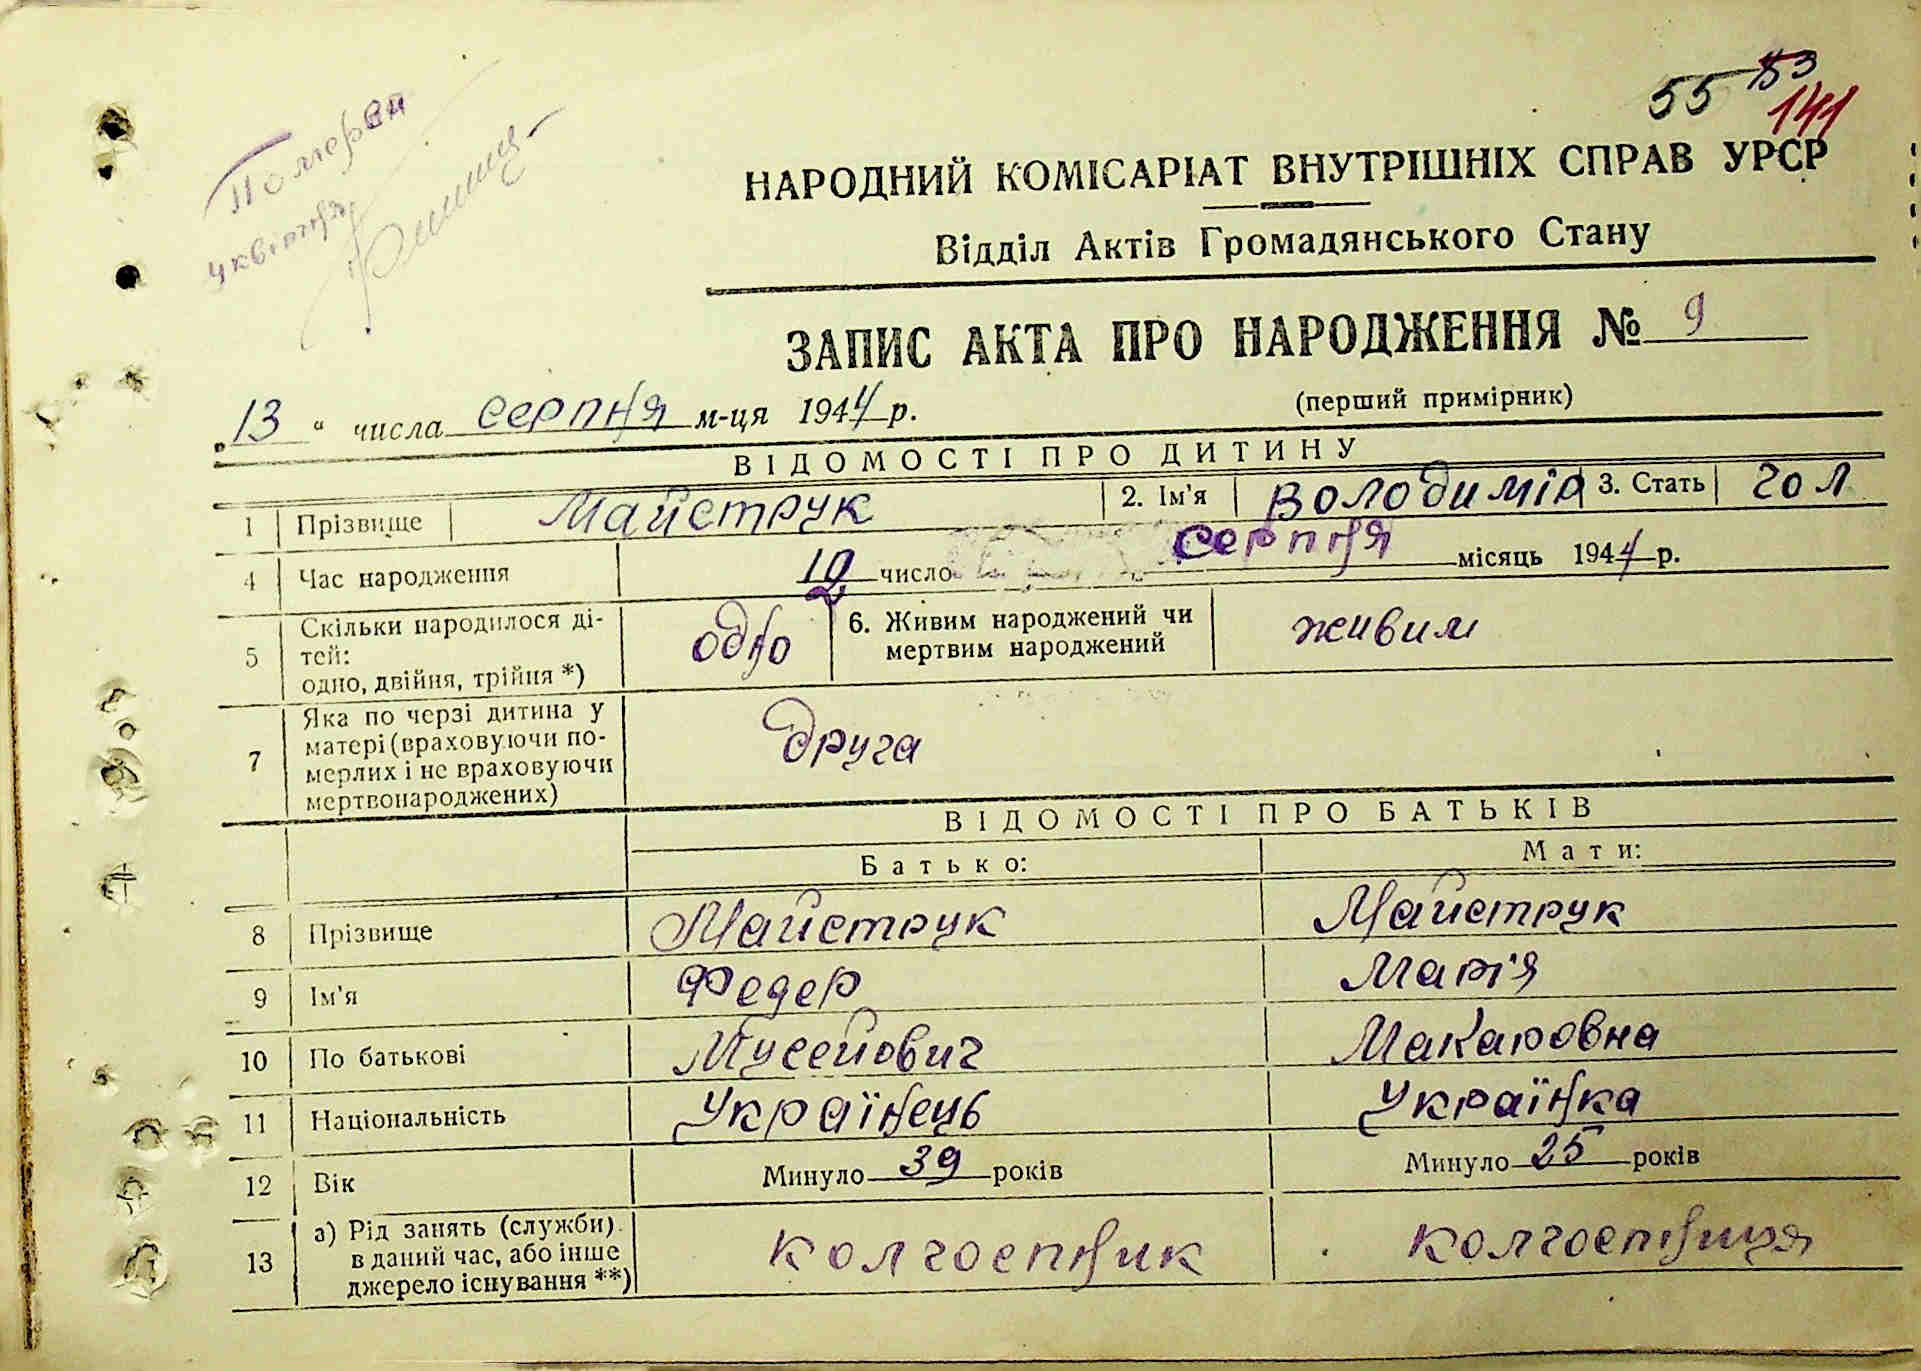 55 83
141
Померан
у квітня
НАРОДНИЙ КОМІСАРІАТ ВНУТРІШНІХ СПРАВ УРСР
Відділ Актів Громадянського Стану
ЗАПИС АКТА ПРО НАРОДЖЕННЯ № 9
„13“ числа серпня м-ця 1944 р. (перший примірник)
ВІДОМОСТІ ПРО ДИТИНУ
1 Прізвище Майструк 2. Ім'я Володимір 3. Стать чол
4 Час народження 10 число серпня місяць 1944 р.
5 Скільки народилося ді-
тей:
одно, двійня, трійня *) одно 6. Живим народжений чи
мертвим народжений живим
7 Яка по черзі дитина у
матері (враховуючи по-
мерлих і не враховуючи
мертвонароджених) друга
ВІДОМОСТІ ПРО БАТЬКІВ
Батько: Мати:
8 Прізвище Майструк Майструк
9 Ім'я Федер Марія
10 По батькові Мусейович Макаровна
11 Національність Українець Українка
12 Вік Минуло 39 років Минуло 25 років
13 а) Рід занять (служби)
в даний час, або інше
джерело існування **) колгоспник колгоспниця